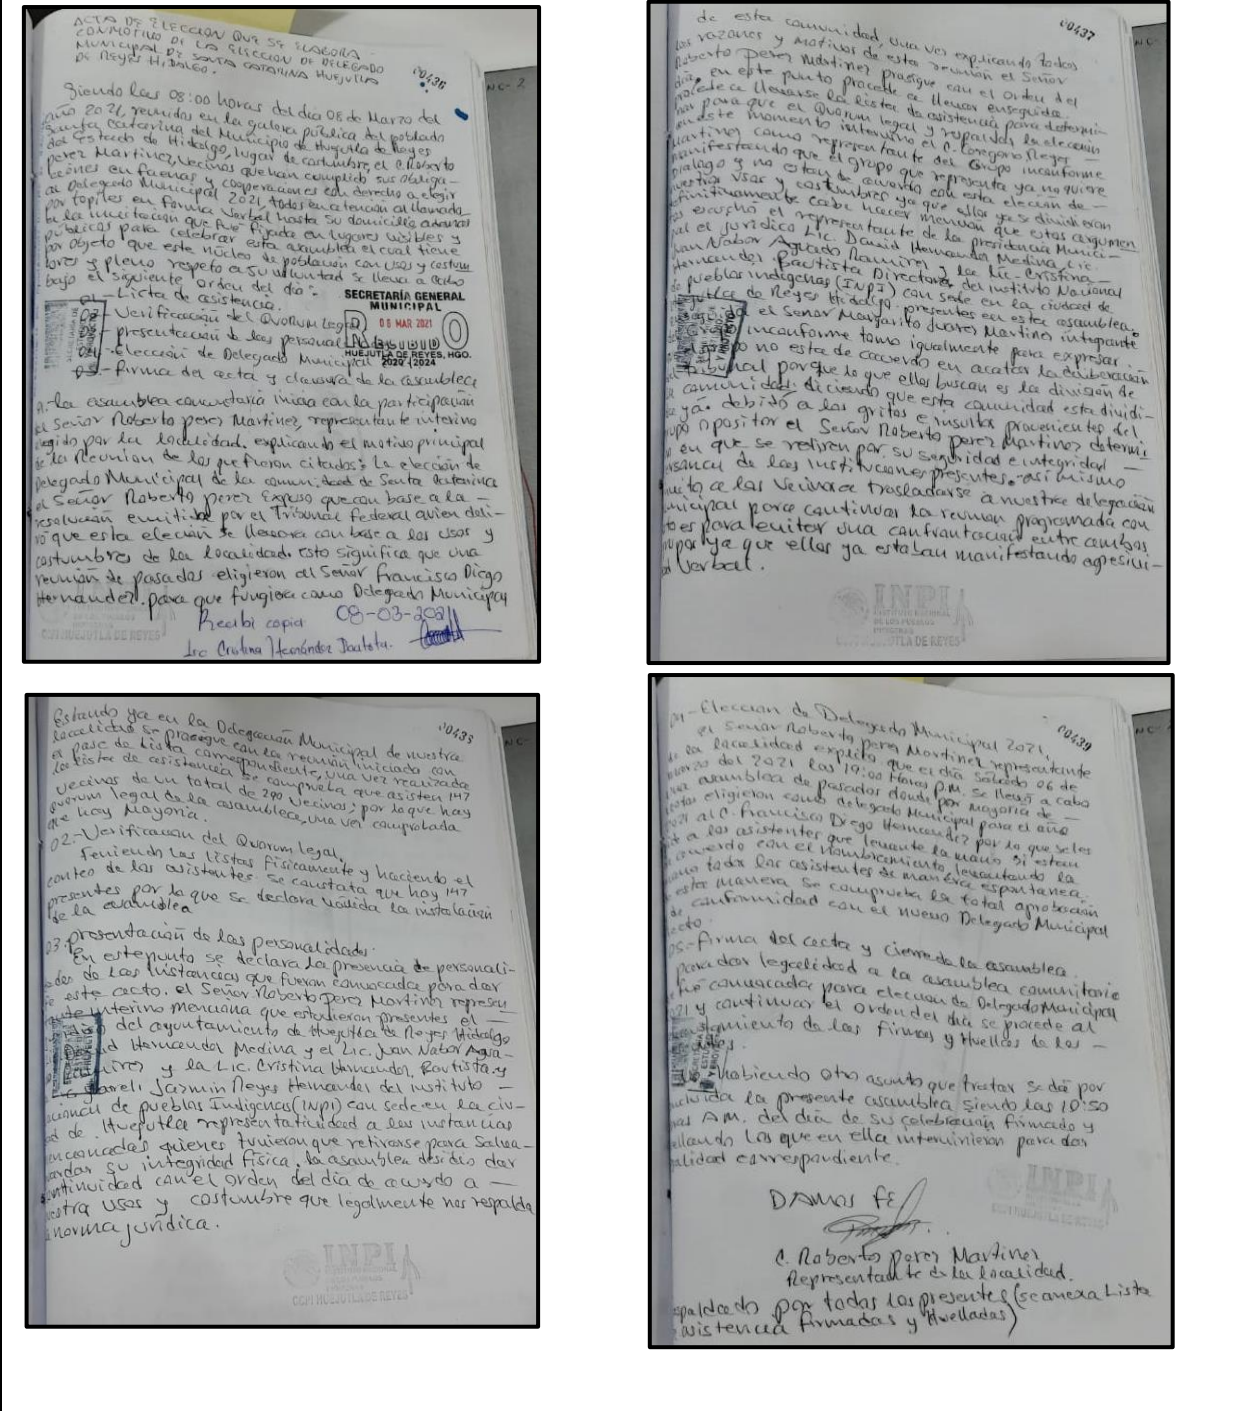 ACTA DE ELECCION QUE SE ELABORA
CONMOTIVO DE LA ELECCION DE DELEGADO
MUNICIPAL DE SANTA CATARINA HUEJUTLA
DE REYES HIDALGO.
00436
Siendo las 08:00 horas del dia 08 de Marzo del
año 2021, reunidos en la galera pública del poblado
Santa Catarina del Municipio de Huejutla de Reyes
del Estado de Hidalgo, lugar de costumbre, el C. Roberto
perez Martinez, Vecinos que han cumplido sus obliga-
ciones en faenas y cooperaciones con derecho a elegir
al Delegado Municipal 2021, todos en atención al llamado
por topiles en forma Verbal hasta su domicilio además
a la invitación que fué fijada en lugares visibles y
públicos para celebrar esta asamblea el cual tiene
por objeto que este núcleo de población con usos y costum
bres y pleno respeto a su voluntad se lleva a cabo
bajo el siguiente orden del día:
01- Lista de asistencia.
02- Verificación del Quorum Legal
- presentación de las personalidades
04- Elección de Delegado Municipal
05- firma del acta y clausura de la asamblea
SECRETARÍA GENERAL
MUNICIPAL
08 MAR 2021
RECIBIDO
HUEJUTLA DE REYES, HGO.
2020 - 2024
.- la asamblea comunitaria inicia con la participación
el Señor Roberto perez Martinez, representante interino
elegido por la localidad. explicando el motivo principal
de la Reunion de los que fueron citados: La elección de
Delegado Municipal de la comunidad de Santa Catarina
el Señor Roberto perez Expuso que con base a la -
resolución emitida por el Tribunal Federal quien deli-
ró que esta eleción se llevara con base a los usos y
costumbres de la localidad. Esto significa que una
reunión de pasados eligieron al Señor Francisco Diego
Hernandez. para que fungiera como Delegado Municipal
Recibi copia 08-03-2021
Lic Cristina Hernández Bautista.
CCPI HUEJUTLA DE REYES
de esta comunidad, una vez explicando todos
00437
los razones y motivos de esta reunión el Señor
Roberto perez Martinez prosigue con el orden del
día, en este punto procede a llevar enseguida.
procede a llevarse la lista de asistencia para determi-
nar para que el Quorum legal y respaldar la elección
en este momento intervino el C. Gregorio Reyes -
Martinez como representante del Grupo inconforme
manifestando que el grupo que representa ya no quiere
dialogo y no estan de acuerdo con esta eleción de -
nuestros usos y costumbres ya que ellos ya se dividieron
definitivamente cabe hacer mención que estos argumen
tos escuchó el representante de la presidencia Munici-
pal el jurídico Lic. David Hernandez Medina, Lic.
Juan Nabor Aguado Ramirez y la Lic. Cristina -
Hernandez Bautista Directora del instituto Nacional
de pueblos indigenas (INPI) con sede en la ciudad de
Huejutla de Reyes Hidalgo. presentes en esta asamblea.
el Señor Margarito Juarez Martinez integrante
inconforme tomo igualmente para expresar
no esta de acuerdo en acatar la deliberación
del Tribunal porque lo que ellos buscan es la división de
comunidad. diciendo que esta comunidad esta dividi-
ya. debidó a los gritos e insultos provenientes del
grupo opositor el Señor Roberto perez Martinez determi
en que se retiren por su seguridad e integridad -
personal de las instituciones presentes. así mismo
invito a los Vecinos a trasladarse a nuestra delegación
municipal para continuar la reunion programada con
esto es para evitar una confrontación entre ambos
grupos ya que ellos ya estaban manifestando agresivi-
dad Verbal.
INPI
INSTITUTO NACIONAL
DE LOS PUEBLOS
INDIGENAS
HUEJUTLA DE REYES
Estando ya en la Delegación Municipal de nuestra
00438
localidad se prosegue con la reunión iniciado con
el pase de lista correspondiente, una vez realizada
la lista de asistencia se comprueba que asisten 147
vecinos de un total de 290 Vecinos; por lo que hay
quorum legal de la asamblea, una vez comprobada
que hay Mayoria.
02.- Verificación del Quorum legal.
Teniendo las listas físicamente y haciendo el
conteo de los asistentes. se constata que hay 147
presentes por lo que se declara valida la instalación
de la asamblea
03. presentación de las personalidades.
En este punto se declara la presencia de personali-
dades de las instancias que fueron convocada para dar
fe este acto. el Señor Roberto Perez Martinez represen
tante interino menciona que estuvieron presentes el -
del ayuntamiento de Huejutla de Reyes Hidalgo
Hernandez Medina y el Lic. Juan Nabor Agua-
y la Lic. Cristina Hernandez Bautista. y
Jazmin Reyes Hernandez del instituto -
nacional de pueblos Indígenas (INPI) con sede en la ciu-
dad de Huejutla representatividad a las instancias
mencionadas quienes tuvieron que retirarse para Salva-
guardar su integridad física. la asamblea desidio dar
continuidad con el orden del día de acuerdo a -
nuestra usos y costumbre que legalmente nos respalda
norma jurídica.
INPI
CCPI HUEJUTLA DE REYES
04 - Eleccion de Delegado Municipal 2021,
00439
el Señor Roberto perez Martinez representante
de la localidad explico que el dia Sábado 06 de
marzo del 2021 las 19:00 Horas P.M. se llevó a cabo
una asamblea de pasados donde por mayoría de -
votos eligieron como delegado Municipal para el año
2021 al C. Francisco Diego Hernandez por lo que se les
a los asistentes que levante la mano si estan
de acuerdo con el nombramiento, levantando la
mano todos los asistentes de manera espontanea.
esta manera se comprueba la total aprobación
de conformidad con el nuevo Delegado Municipal
electo.
05- firma del acta y cierre de la asamblea.
para dar legalidad a la asamblea comunitaria
fué convocadas para elección de Delegado Municipal
2021 y continuar el orden del día se procede al
de las firmas y Huellas de los -
habiendo otro asunto que tratar se da por
concluida la presente asamblea siendo las 10:50
horas A.M. del día de su celebración firmado y
sellando los que en ella intervinieron para dar
legalidad correspondiente.
INPI
DAMOS FE
C. Roberto perez Martinez
Representante de la localidad.
respaldado por todos los presentes (se anexa Lista
asistencia firmadas y Huelladas)